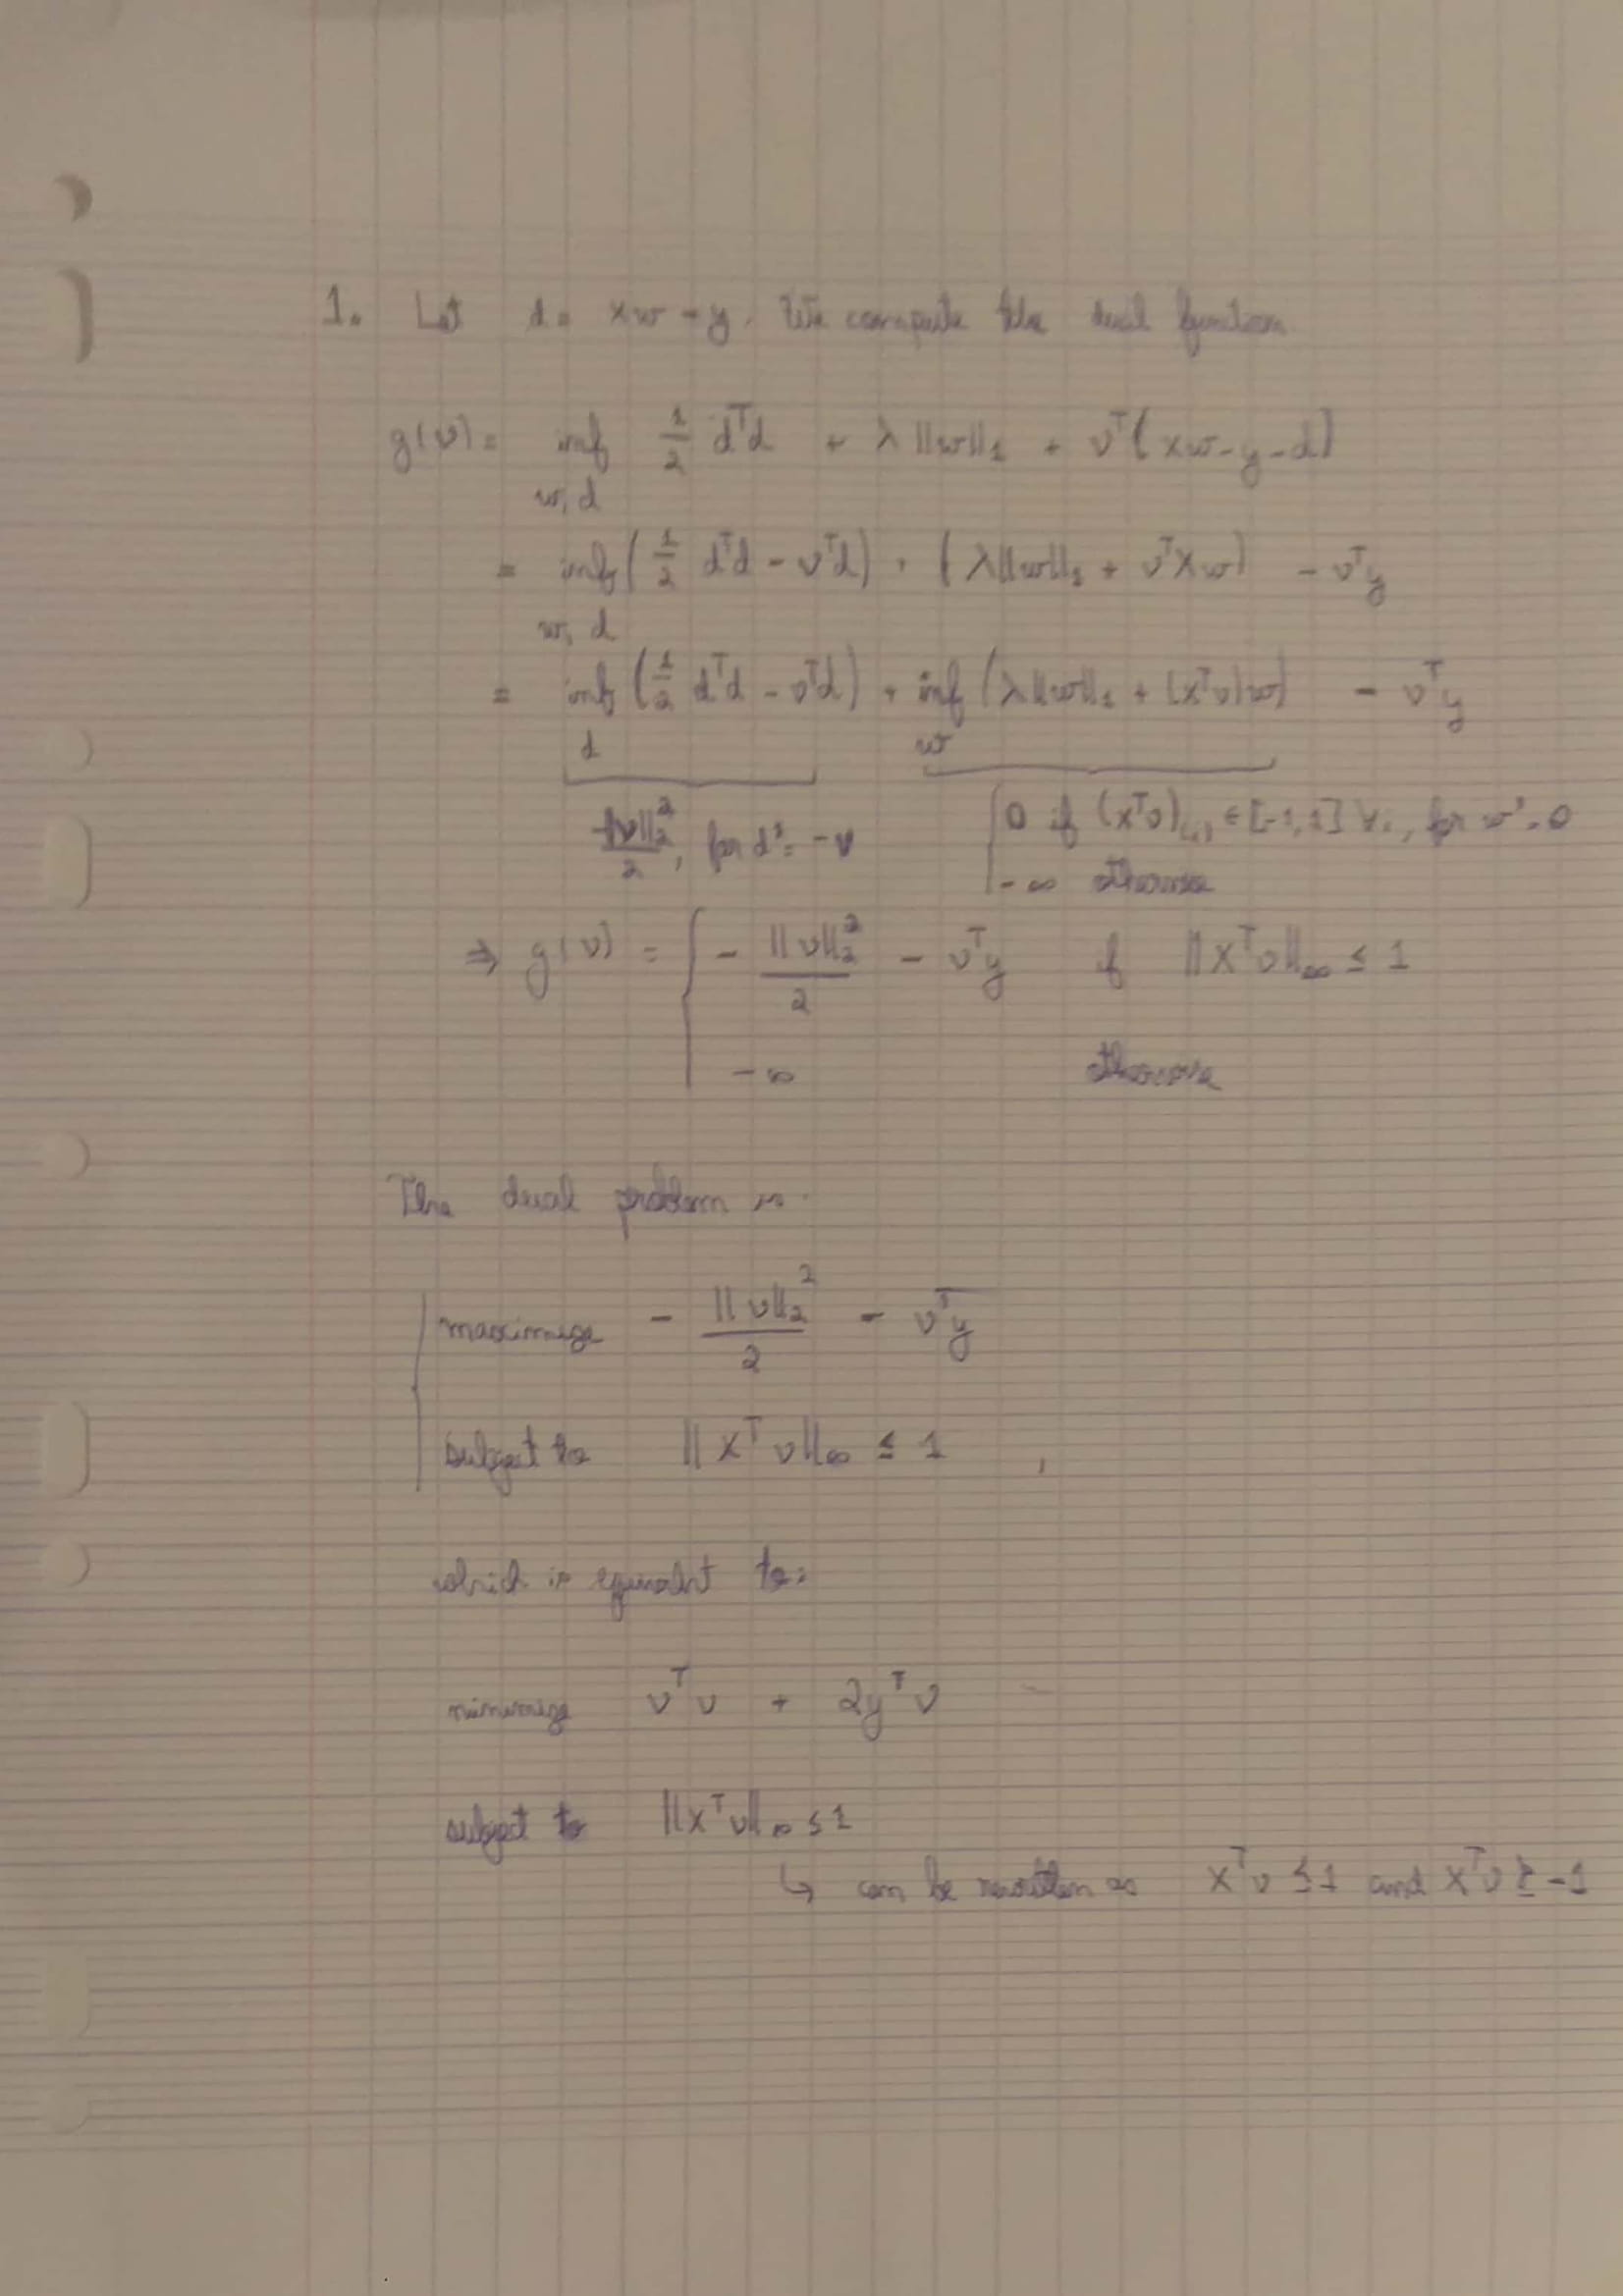 1. Let d = Xw - y. We compute the dual function
g(ν) = inf_{w,d} 1/2 d^T d + λ ||w||_1 + ν^T (Xw - y - d)
= inf_{w,d} (1/2 d^T d - ν^T d) + (λ||w||_1 + ν^T X w) - ν^T y
= inf_d (1/2 d^T d - ν^T d) + inf_w (λ||w||_1 + (X^T ν) w) - ν^T y
-||ν||_2^2 / 2, for d* = -ν { 0 if (X^T ν)_(i) ∈ [-1, 1] ∀i, for w* = 0
-∞ otherwise
⇒ g(ν) = { - ||ν||_2^2 / 2 - ν^T y if ||X^T ν||_∞ ≤ 1
-∞ otherwise
The dual problem is:
maximize - ||ν||_2^2 / 2 - ν^T y
subject to ||X^T ν||_∞ ≤ 1 ,
which is equivalent to:
minimize ν^T ν + 2y^T ν
subject to ||X^T ν||_∞ ≤ 1
↳ can be rewritten as X^T ν ≤ 1 and X^T ν ≥ -1